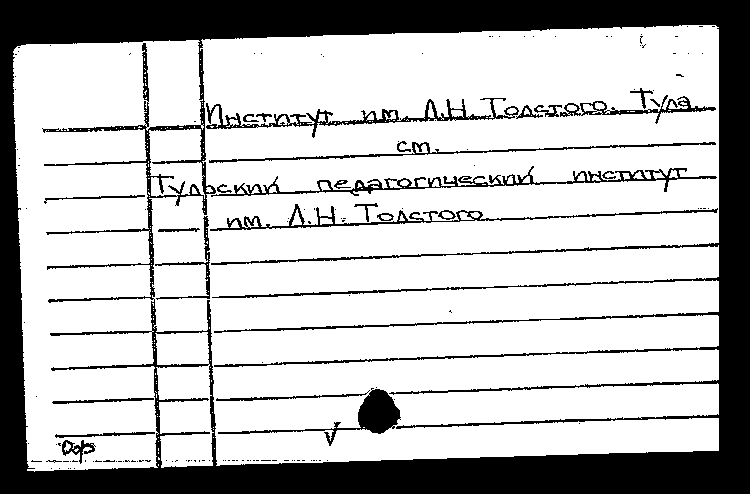 Институт им. Л.Н. Толстого. Тула
см.
Тульский педагогический институт
им. Л.Н. Толстого